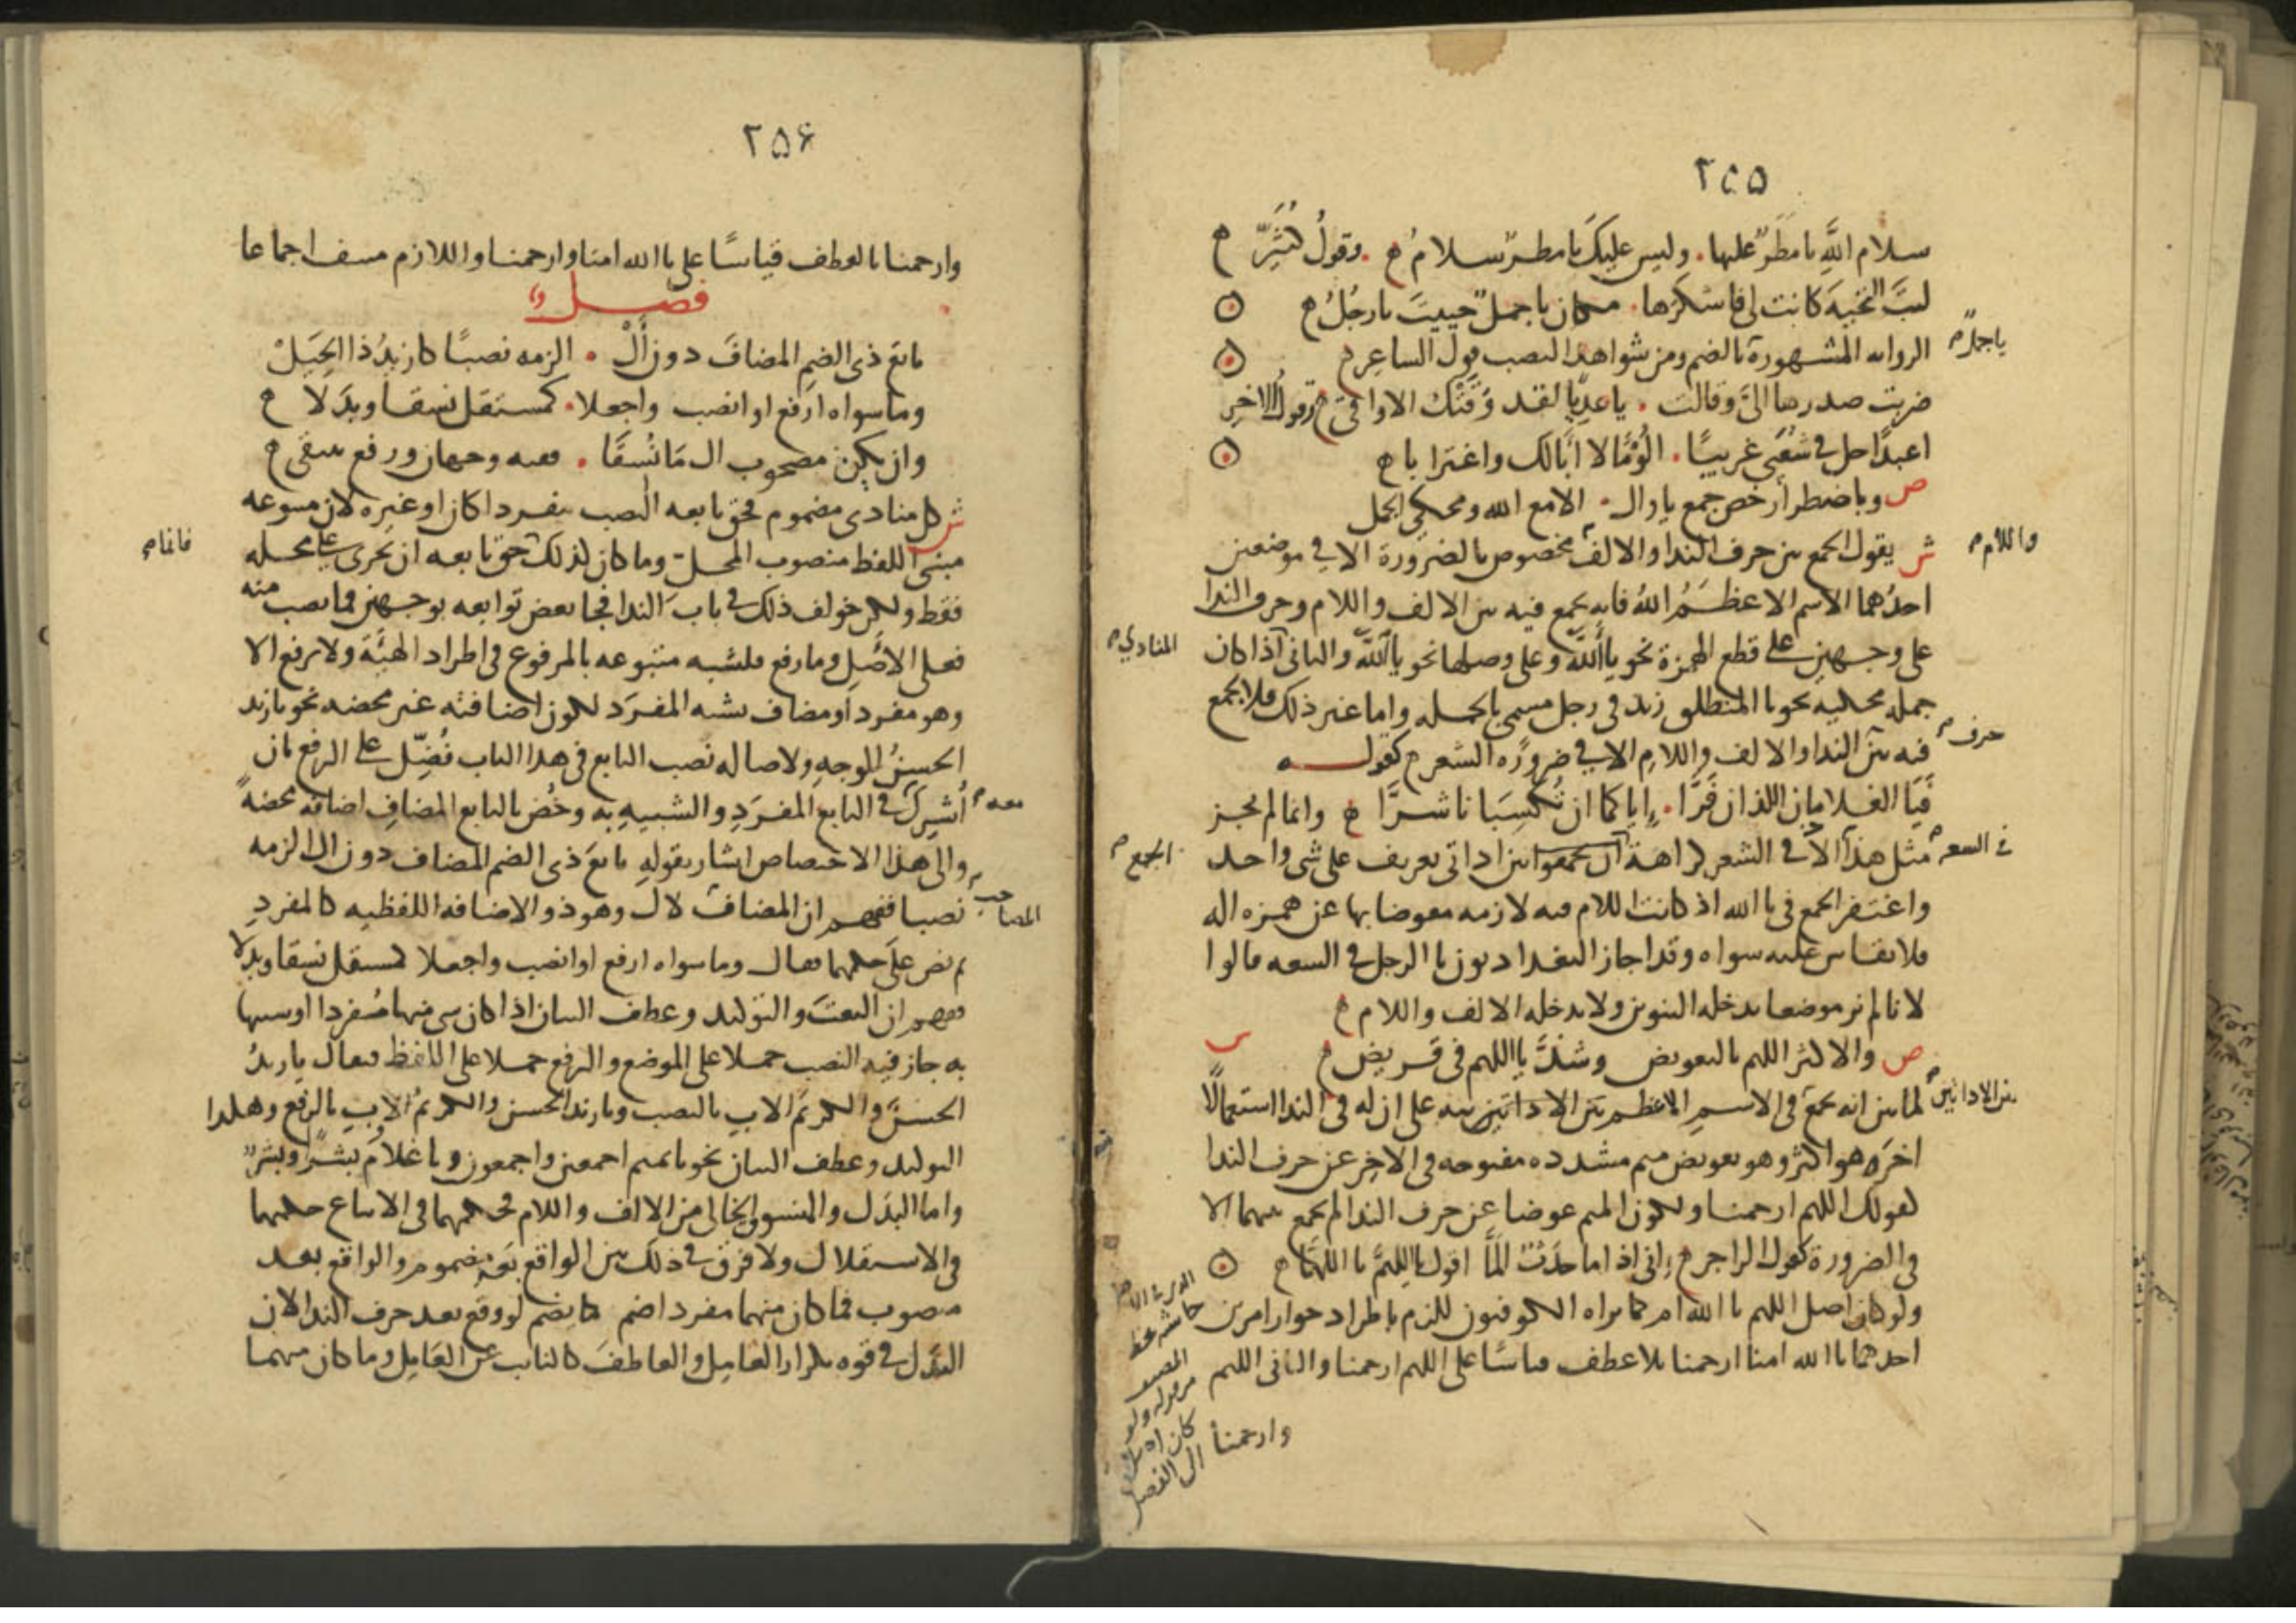 ٢٥٥
سلام الله يا مطرٌ عليها . وليس عليك يا مطر سلام م . وقول كثيّر م
ليت التحية كانت لي فاشكرها . مكان يا جملٌ حييت يا رجل م
يا جملاً م
الرواية المشهورة بالضم ومن شواهد النصب قول الشاعر م
ضربت صدرها اليّ وقالت . يا عديًا لقد وقتك الاواقي م وقول الاخر
اعبدًا حل في شعبى غريبًا . الؤمًا لا ابا لك واغترابا م
ص وباضطرار خص جمع يا وال . الا مع الله ومحكي الجمل
ش يقول الجمع بين حرف الندا والالف مخصوص بالضرورة الا في موضعين
واللام م
احدهما الاسم الاعظم الله فانه يجمع فيه بين الالف واللام وحرف الندا
على وجهين على قطع الهمزة نحو يا ألله وعلى وصلها نحو يا الله والثاني اذا كان
المنادي م
جملة محكية نحو يا المنطلق زيد في رجل مسمى بالجملة واما غير ذلك فلا يجمع
فيه بين الندا والالف واللام الا في ضرورة الشعر م كقوله
حرف م
فيا الغلامان اللذان فرّا . اياكما ان تكسبانا شرّا م وانما لم يجز
مثل هذا الا في الشعر كراهة ان يجمعوا بين اداتي تعريف على شي واحد
في السعة م
الجمع م
واغتفر الجمع في يا الله اذ كانت اللام فيه لازمة معوضا بها عن همزة اله
فلا يقاس عليه سواه وقد اجاز البغداديون يا الرجل في السعة قالوا
لانا لم نر موضعا يدخله التنوين ولا يدخله الالف واللام م
ص والاكثر اللهم بالتعويض وشذّ يا اللهم في قريض م
ش
لما بين انه يجمع في الاسم الاعظم بين الاداتين نبه على ان له في الندا استعمالًا
بين الاداتين م
اخر وهو اكثر وهو تعويض ميم مشددة مفتوحة في الاخر عن حرف الندا
كقولك اللهم ارحمنا ولكون الميم عوضا عن حرف الندا لم يجمع بينهما الا
في الضرورة كقول الراجز م اني اذا ما حدث المّا اقول يا اللهمّ يا اللهمّا م
ولو كان اصل اللهم يا الله ام كما يراه الكوفيون للزم باطراد جواز امرين
احدهما يا الله امنا ارحمنا بلا عطف قياسًا على اللهم ارحمنا والثاني اللهم
وارحمنا
٢٥۶
وارحمنا بالعطف قياسًا على يا الله امنا وارحمنا واللازم منتف اجماعا
فصل
تابع ذي الضم المضاف دون أل . الزمه نصبًا كازيد ذا الحيل
وما سواه ارفع او انصب واجعلا . كمستقل نسقا وبدلا م
وان يكن مصحوب ال ما نسقا . ففيه وجهان ورفع ينتقى م
ش كل منادى مضموم فحق تابعه النصب مفردا كان او غيره لان متبوعه
مبنى اللفظ منصوب المحل وما كان كذلك حق تابعه ان يجرى على محله
فقط ولكن خولف ذلك في باب الندا فجا بعض توابعه بوجهين فما نصب منه
فانما م
فعلى الاصل وما رفع فلشبه متبوعه بالمرفوع في اطراد الهيئة ولا يرفع الا
وهو مفرد او مضاف يشبه المفرد لكون اضافته غير محضة نحو يا زيد
الحسنُ الوجهِ ولاصالة نصب التابع في هذا الباب فُضّل على الرفع بان
أُشرك في التابع المفرد والشبيه به وخُص بالتابع المضاف اضافة محضة
معه م
والى هذا الاختصاص اشار بقوله تابع ذي الضم المضاف دون ال الزمه
نصبا ففهم ان المضاف لال وهو ذو الاضافة اللفظية كالمفرد
المصاحب م
ثم نص على حكمهما فقال وما سواه ارفع او انصب واجعلا كمستقل نسقا وبدلا
ففهم ان النعت والتوكيد وعطف البيان اذا كان شي منها مفردا او شبيها
به جاز فيه النصب حملا على الموضع والرفع حملا على اللفظ فيقال يا زيد
الحسنَ والكريمَ الاب بالنصب ويا زيد الحسنُ والكريمُ الاب بالرفع وهكذا
التوكيد وعطف البيان نحو يا تميم اجمعين واجمعون ويا غلام بشرًا وبشرٌ
واما البدل والمنسوق الخالي من الالف واللام فحكمهما في الاتباع حكمهما
في الاستقلال ولا فرق في ذلك بين الواقع بعد مضموم والواقع بعد
منصوب فما كان منهما مفردا ضم كما يضم لو وقع بعد حرف الندا لان
البدل في قوة تكرار العامل والعاطف كالنايب عن العامل وما كان منهما